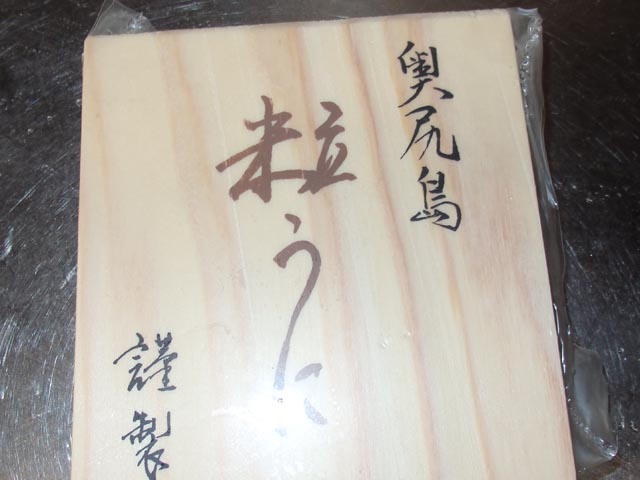 奥尻島
粒うに
謹製